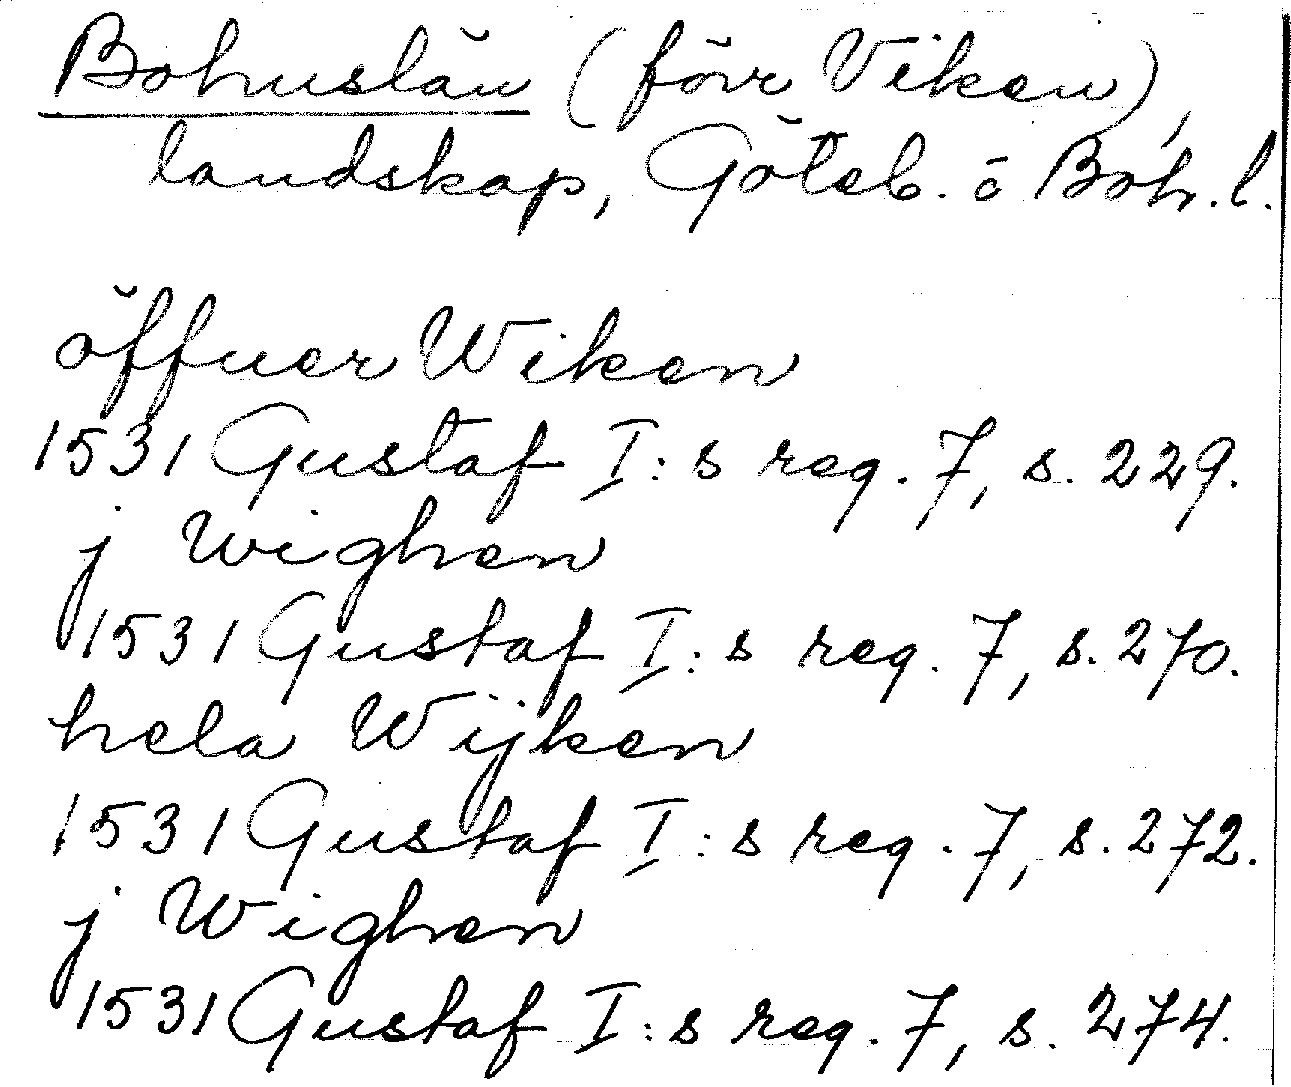 Bohuslän (förr Viken),
landskap, Göteb. o Boh. l.
öffuer Wiken
1531 Gustaf I:s reg. 7, s. 229.
j Wighen
1531 Gustaf I:s reg. 7, s. 270.
hela Wijken
1531 Gustaf I:s reg. 7, s. 272.
j Wighen
1531 Gustaf I:s reg. 7, s. 274.